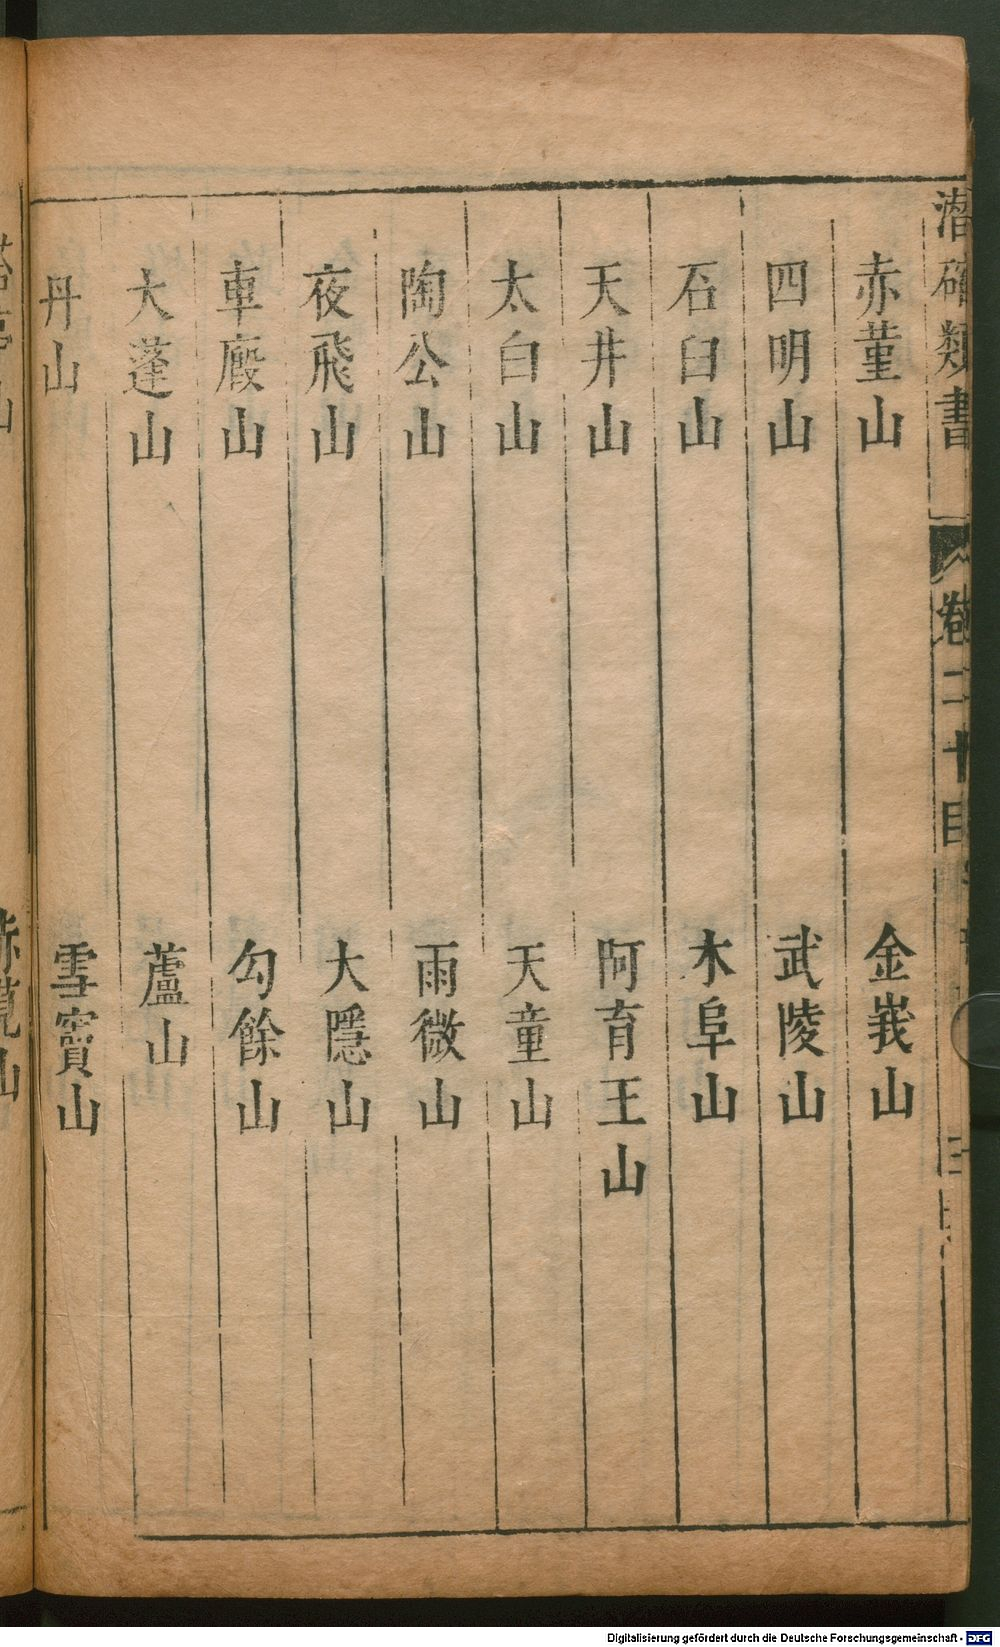 潛確類書 卷二十目 三
赤菫山 金峩山
四明山 武陵山
石臼山 木阜山
天井山 阿育王山
太白山 天童山
陶公山 雨微山
夜飛山 大隱山
車廄山 勾餘山
大蓬山 蘆山
丹山 雪竇山
Digitalisierung gefördert durch die Deutsche Forschungsgemeinschaft - DFG